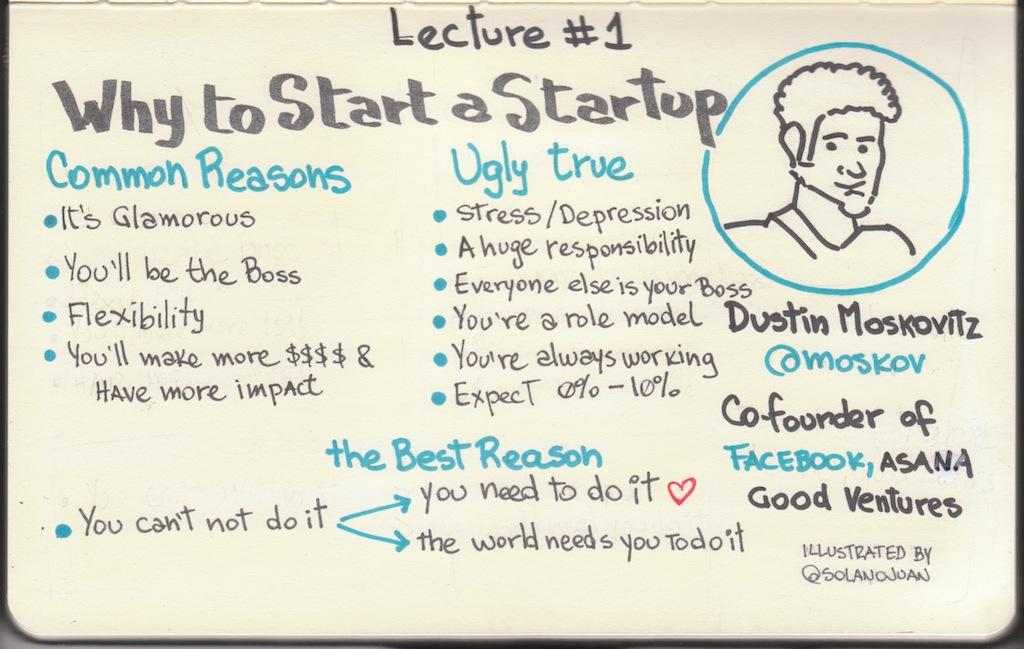 Lecture #1
Why to Start a Startup
Common Reasons
It's Glamorous
You'll be the Boss
Flexibility
You'll make more $$$$ &
HAVE more impact
Ugly true
Stress/Depression
A huge responsibility
Everyone else is your Boss
You're a role model
You're always working
Expect 0% - 10%
the Best Reason
You can't not do it
you need to do it
the world needs you to do it
Dustin Moskovitz
@moskov
Co-founder of
FACEBOOK, ASANA
Good Ventures
ILLUSTRATED BY
@SOLANOJUAN